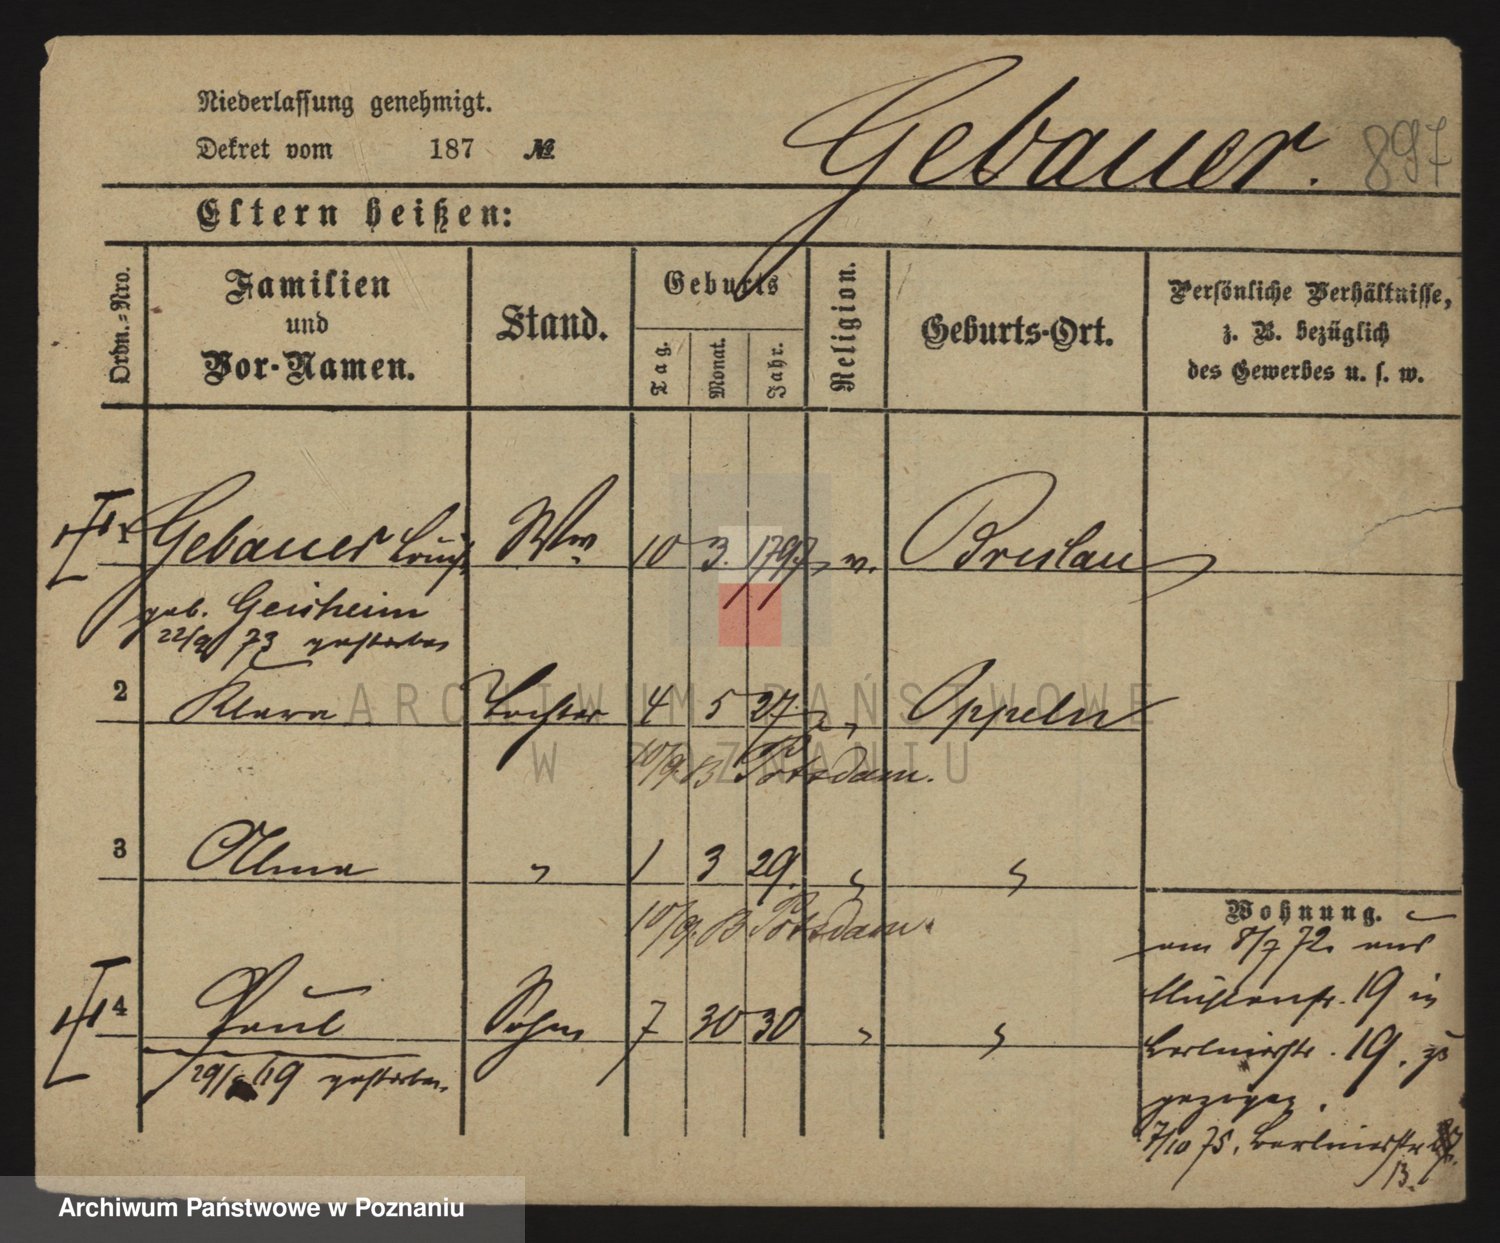 Niederlassung genehmigt.
Dekret vom 187 №
Gebauer.
897
Eltern heißen:
Ordn.-Nro.
Familien
und
Vor-Namen.
Stand.
Geburts
Tag.
Monat.
Jahr.
Religion.
Geburts-Ort.
Persönliche Verhältnisse,
z. B. bezüglich
des Gewerbes u. s. w.
1 Gebauer Louise Ww. 10 3. 1797 Breslau
geb. Geisheim
22/9 73 gestorben
2 Klara Tochter 4 5 27. " Oppeln
10/9 Potsdam.
3 Alma " 1 3 29. " "
10/9. Potsdam.
4 Paul Sohn 7 30 " "
gestorben.
Wohnung.
am 8/7 72. aus
Mühlenstr. 19 in
Berlinerstr. 19. zu
gezogen.
7/10 75. Berlinerstr
13.
ARCHIWUM PAŃSTWOWE
W POZNANIU
Archiwum Państwowe w Poznaniu